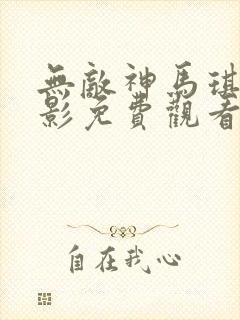 無敵神馬琪
影免費觀看
自在我心